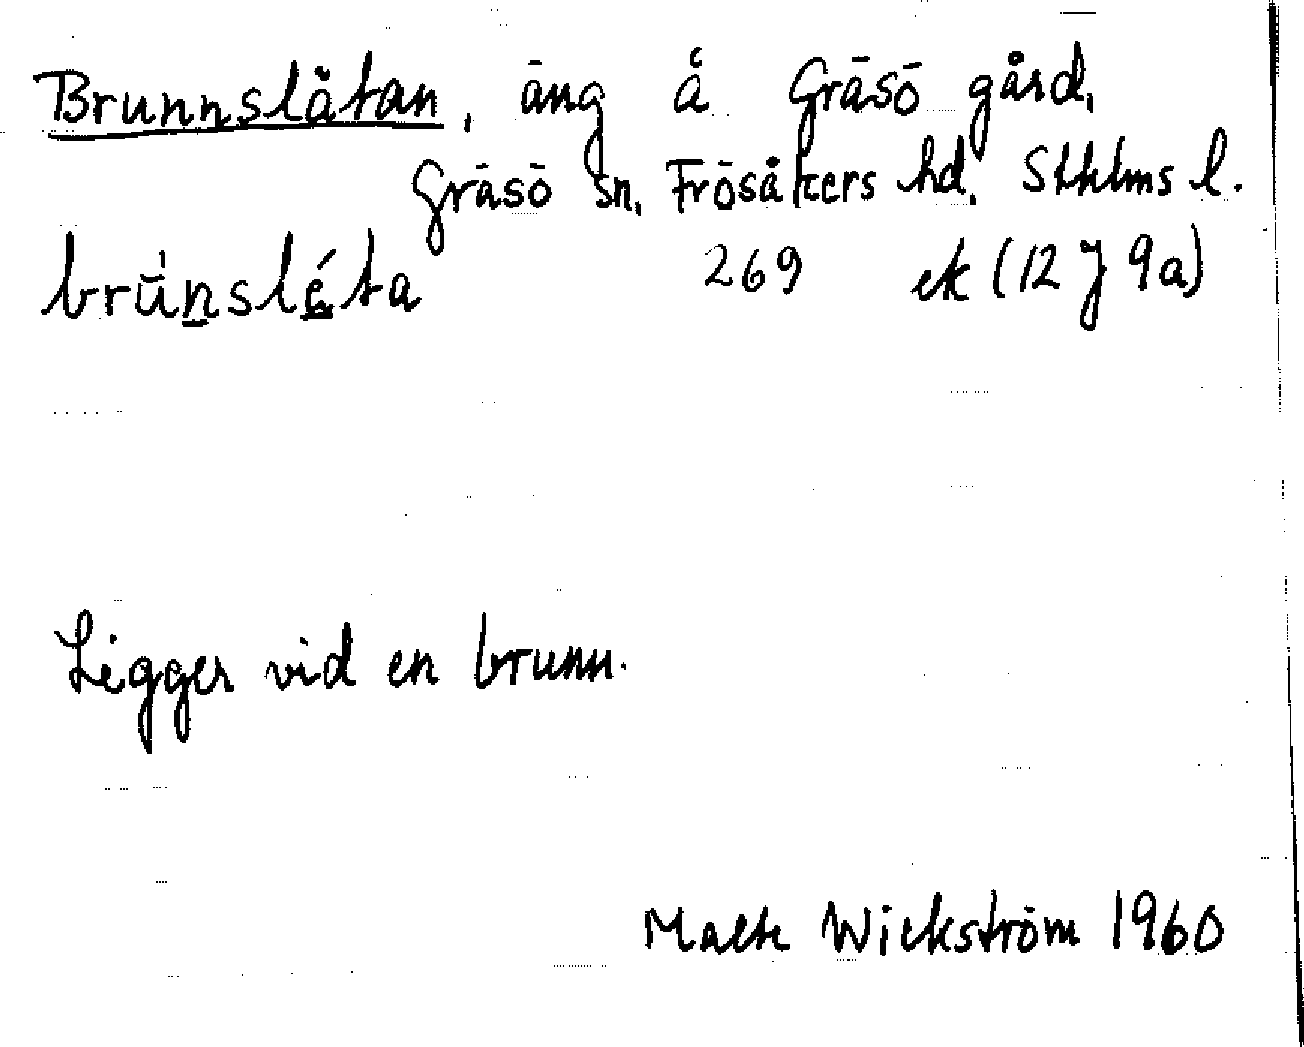 Brunnslåtan, äng å Gräsö gård,
Gräsö sn, Frösåkers hd, Sthlms l.
brūnsléta 269 ek (12 J 9a)
Ligger vid en brunn.
Malte Wickström 1960